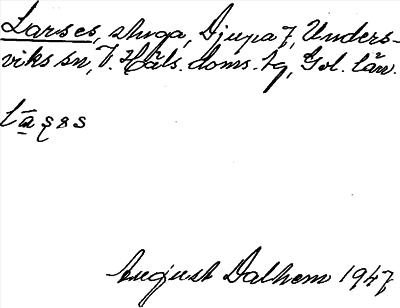 Larses, stuga, Djupa 7, Unders-
viks sn, V. Häls. doms. tg, Gvl. län.
lásses
August Dalhem 1947